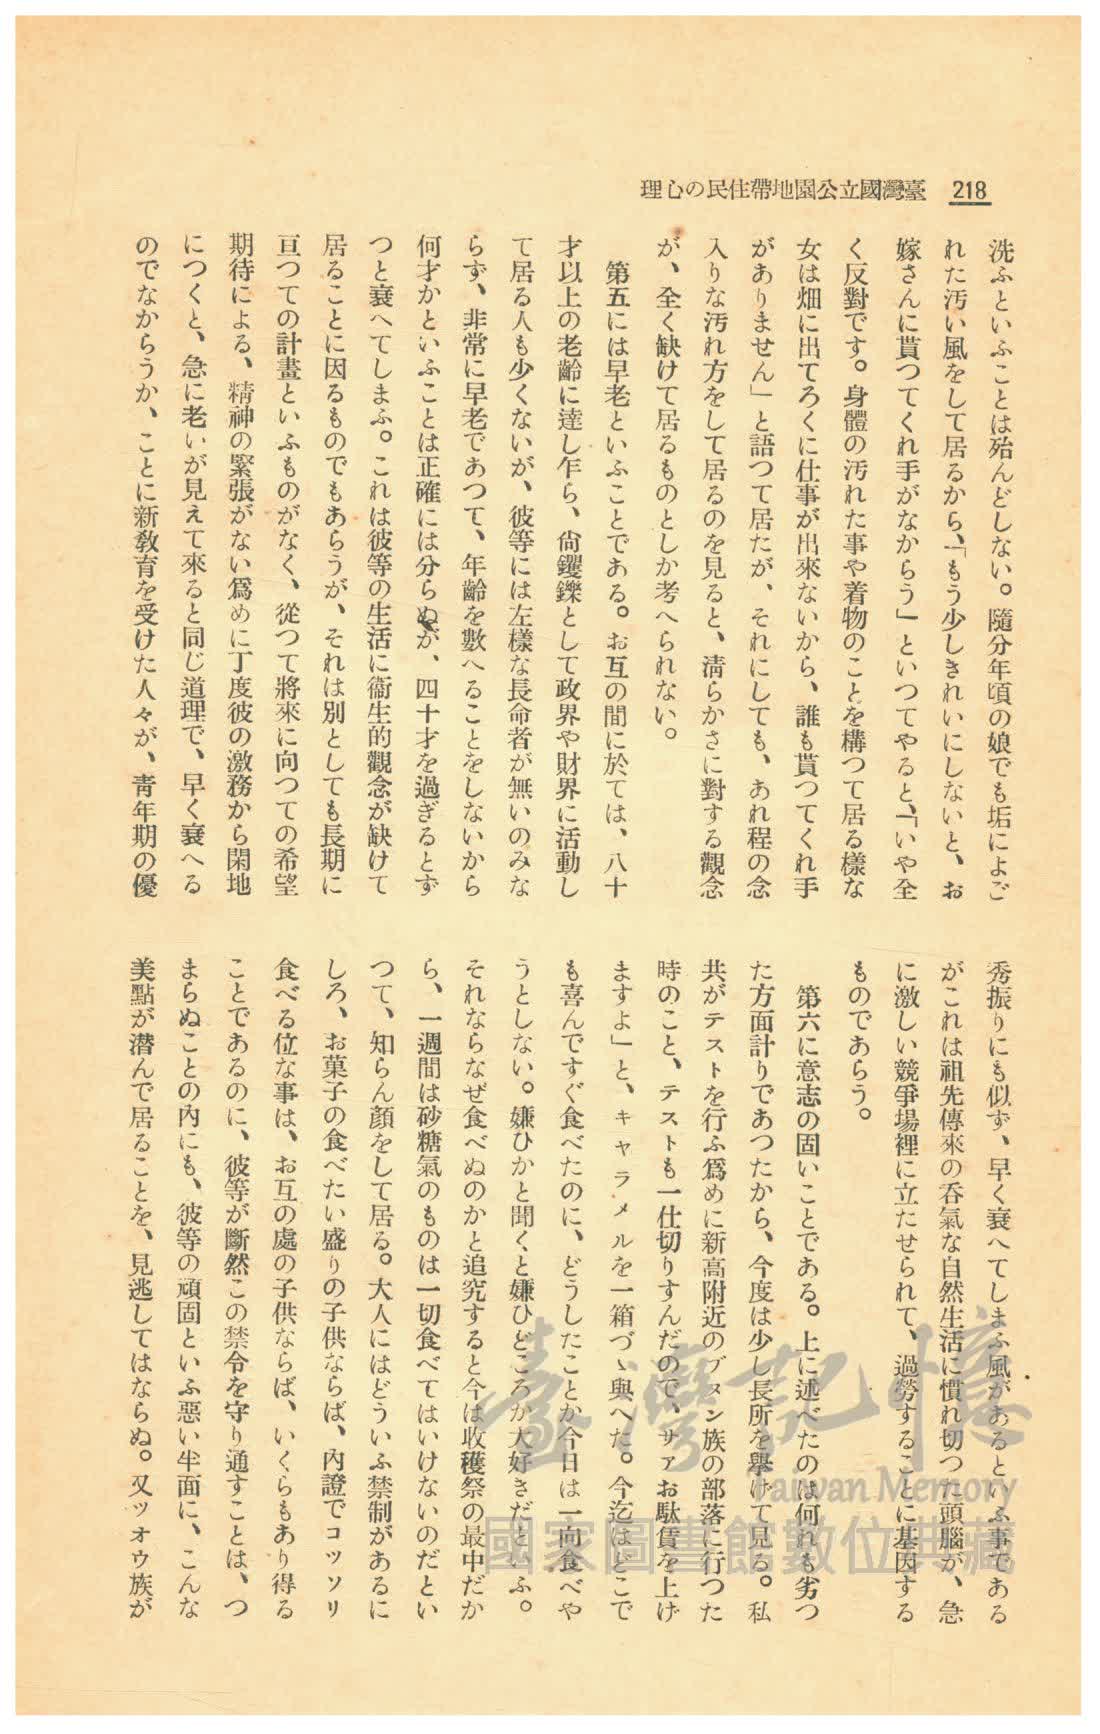 218
臺灣國立公園地帶住民の心理
洗ふといふことは殆んどしない。隨分年頃の娘でも垢によご
れた汚い風をして居るから、「もう少しきれいにしないと、お
嫁さんに貰つてくれ手がなからう」といつてやると、「いや全
く反對です。身體の汚れた事や着物のことを構つて居る樣な
女は畑に出てろくに仕事が出來ないから、誰も貰つてくれ手
がありません」と語つて居たが、それにしても、あれ程の念
入りな汚れ方をして居るのを見ると、淸らかさに對する觀念
が、全く缺けて居るものとしか考へられない。
第五には早老といふことである。お互の間に於ては、八十
才以上の老齡に達し乍ら、尙钁鑠として政界や財界に活動し
て居る人も少くないが、彼等には左樣な長命者が無いのみな
らず、非常に早老であつて、年齡を數へることをしないから
何才かといふことは正確には分らぬが、四十才を過ぎるとず
つと衰へてしまふ。これは彼等の生活に衞生的觀念が缺けて
居ることに因るものでもあらうが、それは別としても長期に
亘つての計畫といふものがなく、從つて將來に向つての希望
期待による、精神の緊張がない爲めに丁度彼の激務から閑地
につくと、急に老いが見えて來ると同じ道理で、早く衰へる
のでなからうか、ことに新敎育を受けた人々が、靑年期の優
秀振りにも似ず、早く衰へてしまふ風があるといふ事である
がこれは祖先傳來の呑氣な自然生活に慣れ切つた頭腦が、急
に激しい競爭場裡に立たせられて、過勞することに基因する
ものであらう。
第六に意志の固いことである。上に述べたのは何れも劣つ
た方面計りであつたから、今度は少し長所を擧げて見る。私
共がテストを行ふ爲めに新高附近のブヌン族の部落に行つた
時のこと、テストも一仕切りすんだので、サアお駄賃を上げ
ますよ」と、キャラメルを一箱づゝ與へた。今迄はどこで
も喜んですぐ食べたのに、どうしたことか今日は一向食べや
うとしない。嫌ひかと聞くと嫌ひどころか大好きだといふ。
それならなぜ食べぬのかと追究すると今は收穫祭の最中だか
ら、一週間は砂糖氣のものは一切食べてはいけないのだとい
つて、知らん顏をして居る。大人にはどういふ禁制があるに
しろ、お菓子の食べたい盛りの子供ならば、內證でコッソリ
食べる位な事は、お互の處の子供ならば、いくらもあり得る
ことであるのに、彼等が斷然この禁令を守り通すことは、つ
まらぬことの內にも、彼等の頑固といふ惡い半面に、こんな
美點が潜んで居ることを、見逃してはならぬ。又ツオウ族が
臺灣記憶
Taiwan Memory
國家圖書館數位典藏